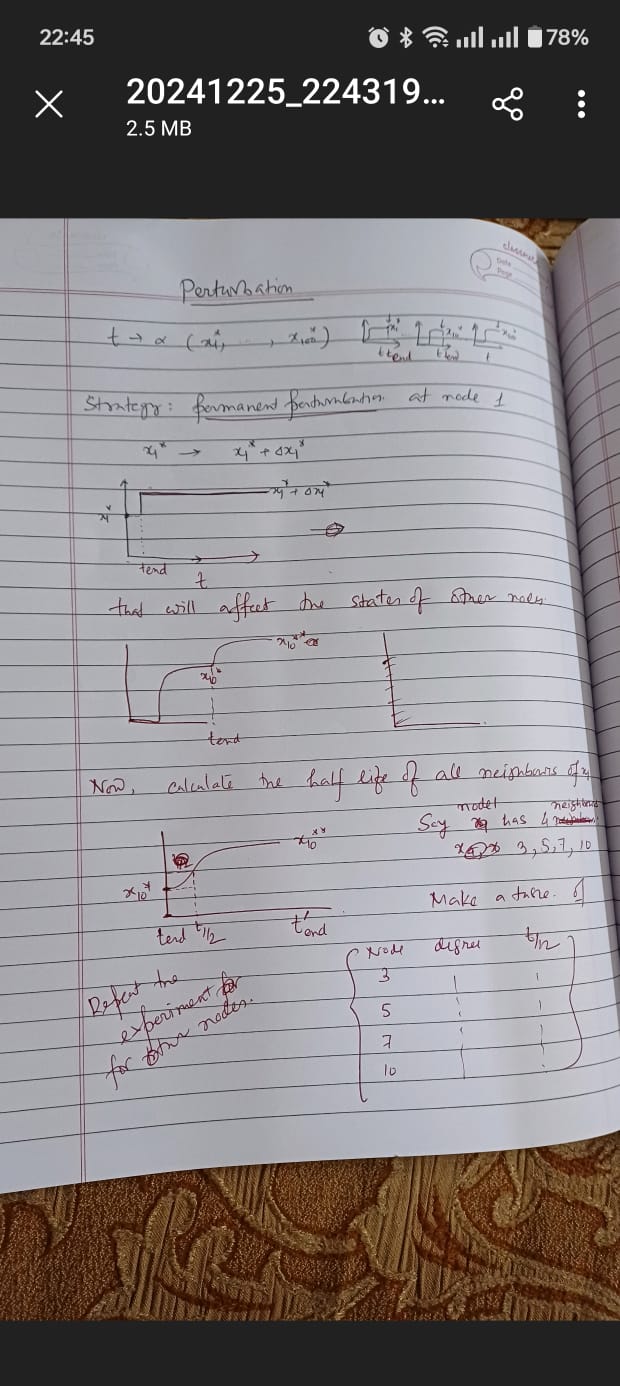 22:45
78%
20241225_224319...
2.5 MB
classmate
Date
Page
Perturbation
t → ∝ (x₁*, ..., x₁₀₀*)
t tend
t tend
t
Strategy: permanent perturbation at node 1
x₁* → x₁* + Δx₁*
x₁* + Δx₁*
x₁*
tend
t
that will affect the states of other nodes
x₁₀**
x₁₀*
tend
Now, calculate the half life of all neighbours of x₁
Say node1 has 4 neighbours
3, 5, 7, 10
x₁₀**
x₁₀*
tend t1/2 t'end
Make a table of
Node degree t1/2
3
5
7
10
Repeat the
experiment for
for other nodes.